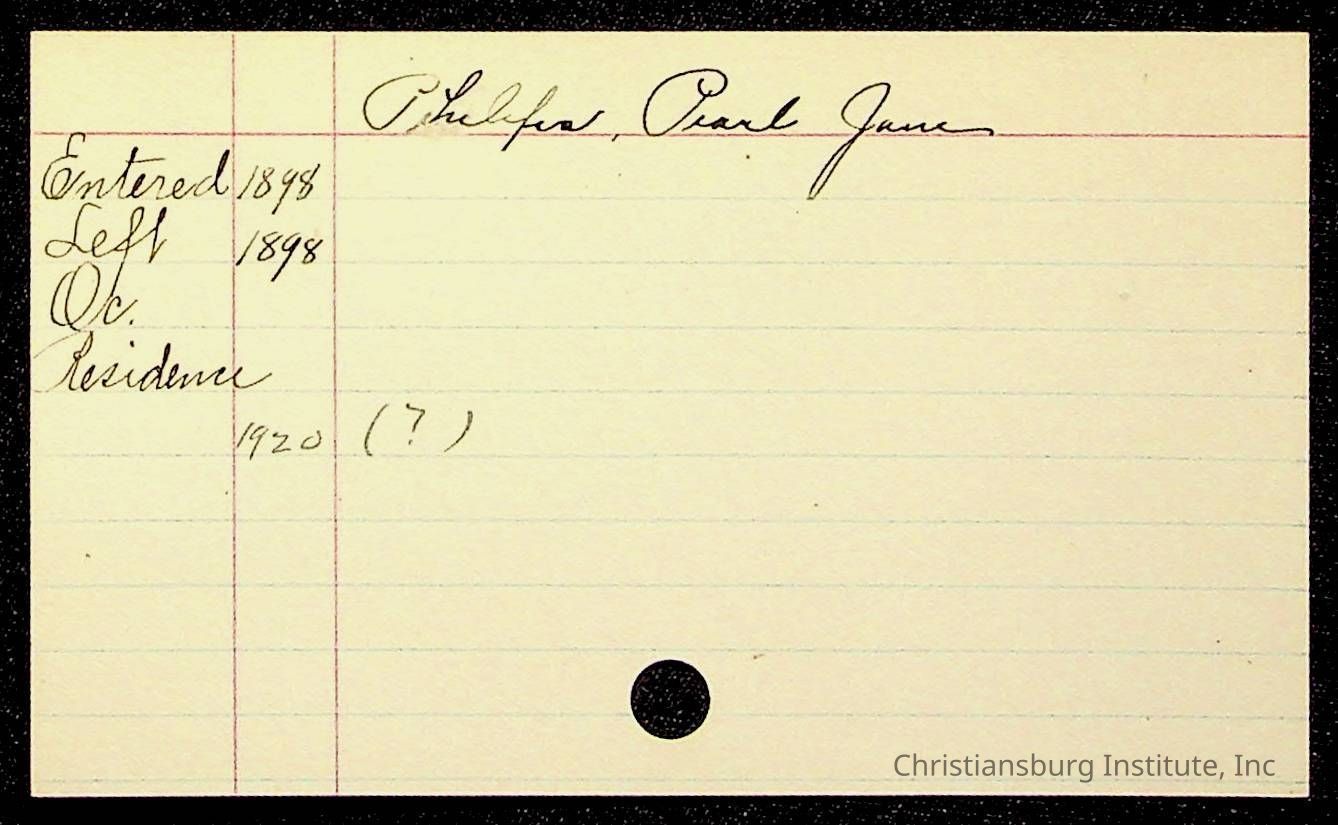 Philips, Pearl Jane
Entered 1898
Left 1898
Oc.
Residence
1920 (?)
Christiansburg Institute, Inc